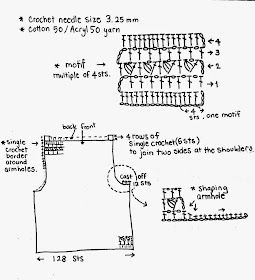 * Crochet needle size 3.25 mm
* Cotton 50/Acryl 50 yarn
* motif
multiple of 4sts.
4
3
2
1
4
sts, one motif
back front
4 rows of
single crochet (6sts)
to join two sides at the shoulders.
* single
crochet
border
around
armholes.
Cast off
12 sts
* shaping
armhole
128 Sts